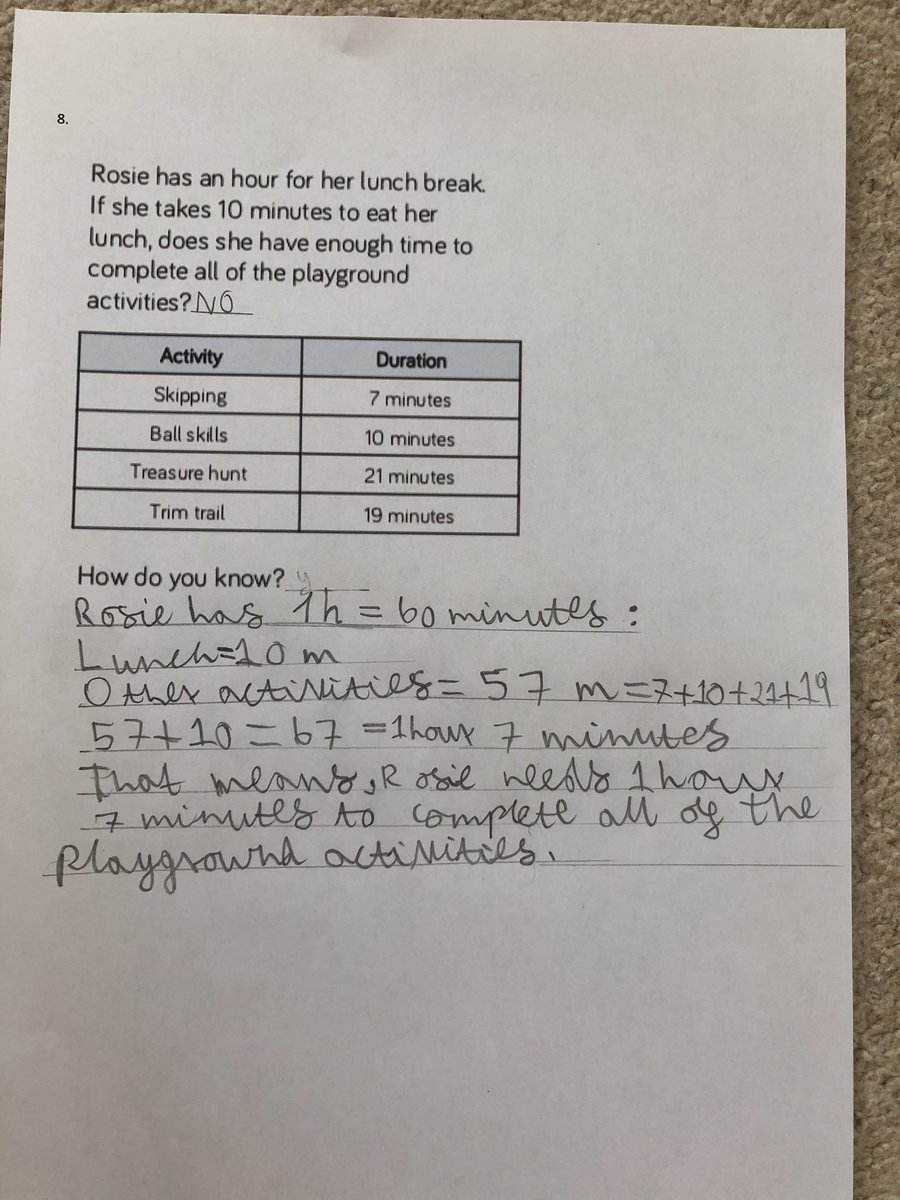 8.
Rosie has an hour for her lunch break.
If she takes 10 minutes to eat her
lunch, does she have enough time to
complete all of the playground
activities? NO
Activity Duration
Skipping 7 minutes
Ball skills 10 minutes
Treasure hunt 21 minutes
Trim trail 19 minutes
How do you know? y
Rosie has 1h = 60 minutes :
Lunch=10 m
Other activities = 57 m=7+10+21+19
57+10=67 =1hour 7 minutes
That means, Rosie needs 1hour
7 minutes to complete all of the
playground activities.